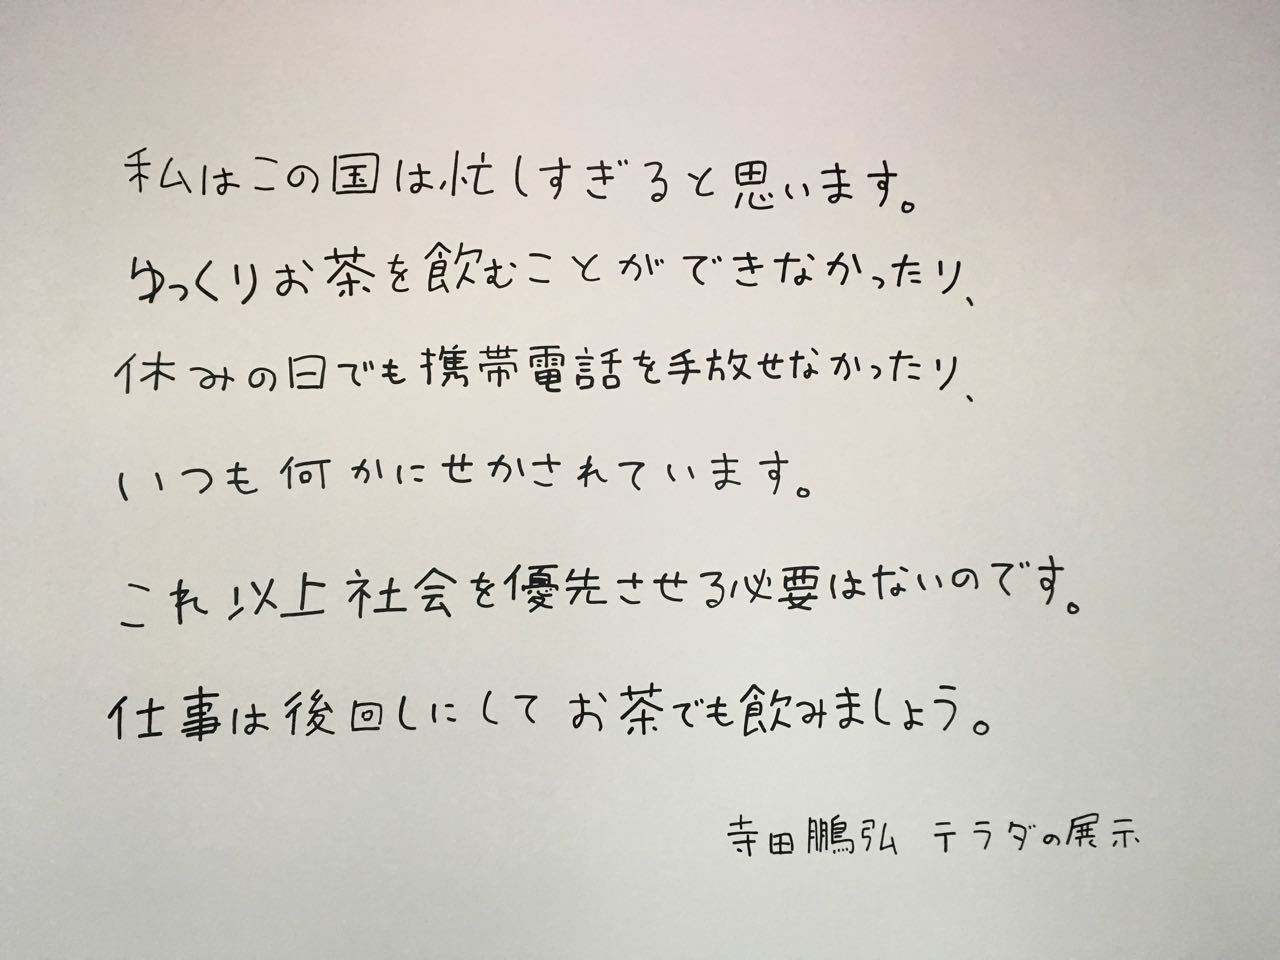 私はこの国は忙しすぎると思います。
ゆっくりお茶を飲むことができなかったり、
休みの日でも携帯電話を手放せなかったり、
いつも何かにせかされています。
これ以上社会を優先させる必要はないのです。
仕事は後回しにしてお茶でも飲みましょう。
寺田鵬弘 テラダの展示